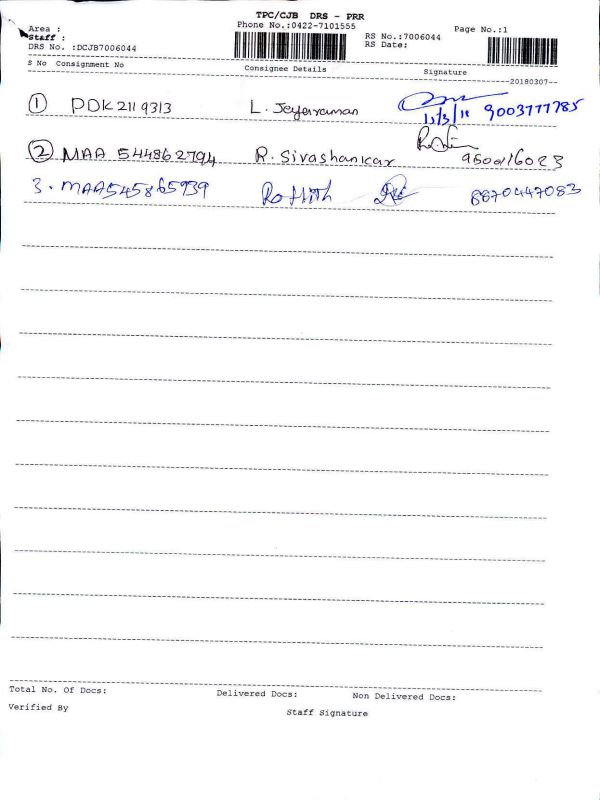 TPC/CJB DRS - PRR
Area :
Phone No.:0422-7101555
Page No.:1
Staff :
RS No.:7006044
DRS No. :DCJB7006044
RS Date:
S No Consignment No Consignee Details Signature
20180307
1 PDK2119313 L. Jeyaraman 9003777785
2 MAA 544862794 R. Sivashankar 9500116023
3. MAA545865939 Rohith 8870447083
Total No. Of Docs: Delivered Docs: Non Delivered Docs:
Verified By Staff Signature